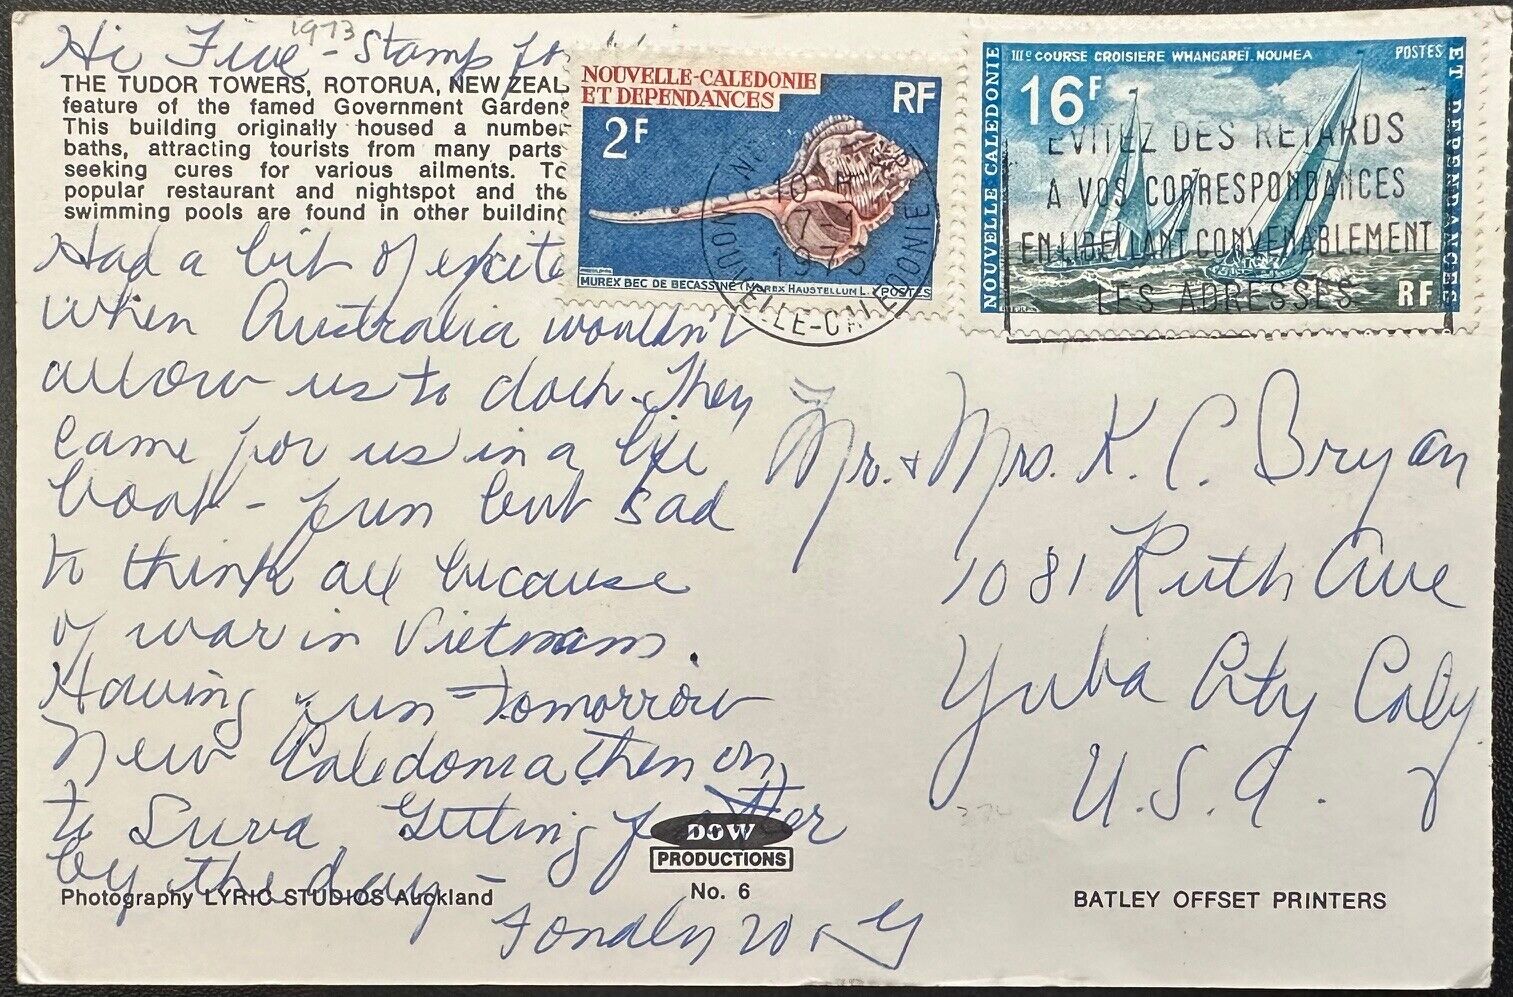 1973
Hi Five - Stamp for
THE TUDOR TOWERS, ROTORUA, NEW ZEAL
feature of the famed Government Gardens
This building originally housed a number
baths, attracting tourists from many parts
seeking cures for various ailments. To
popular restaurant and nightspot and the
swimming pools are found in other building
Had a bit of excite
when Australia wouldn't
allow us to dock. They
came for us in a life
boat - fun but sad
to think all because
of war in Vietnam.
Having fun - tomorrow
New Caledonia then on
to Suva. Getting fatter
by the day -
Fondly
NOUVELLE-CALEDONIE
ET DEPENDANCES
RF
2F
MUREX BEC DE BECASSINE (MUREX HAUSTELLUM L.) POSTES
10 H
7-1
1973
NOUVELLE-CALEDONIE
IIIe COURSE CROISIERE WHANGAREI. NOUMEA
POSTES
16F
NOUVELLE CALEDONIE
ET DEPENDANCES
RF
EVITEZ DES RETARDS
A VOS CORRESPONDANCES
EN LIBELLANT CONVENABLEMENT
LES ADRESSES
Mr. + Mrs. K. C. Bryan
1081 Ruth Ave
Yuba City Calif
U.S.A.
DOW
PRODUCTIONS
No. 6
Photography LYRIC STUDIOS Auckland
BATLEY OFFSET PRINTERS